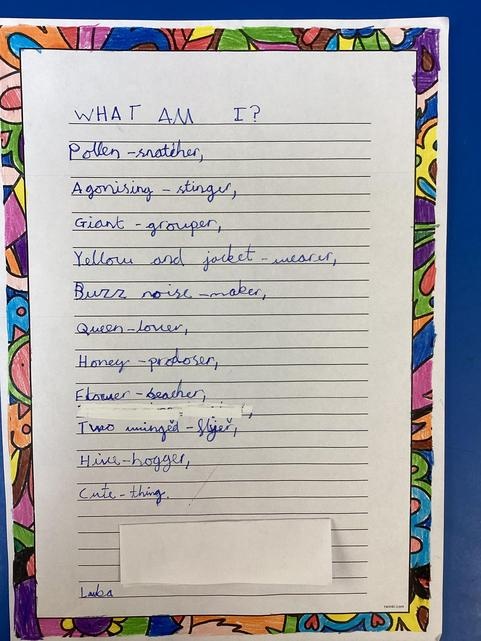 WHAT AM I?
Pollen-snatcher,
Agonising - stinger,
Giant - grouper,
Yellow and jacket - wearer,
Buzz noise - maker,
Queen-lover,
Honey - prodoser,
Flower - seacher,
,
Two winged - flyer,
Hive-hogger,
Cute - thing.
Luba
twinkl.com